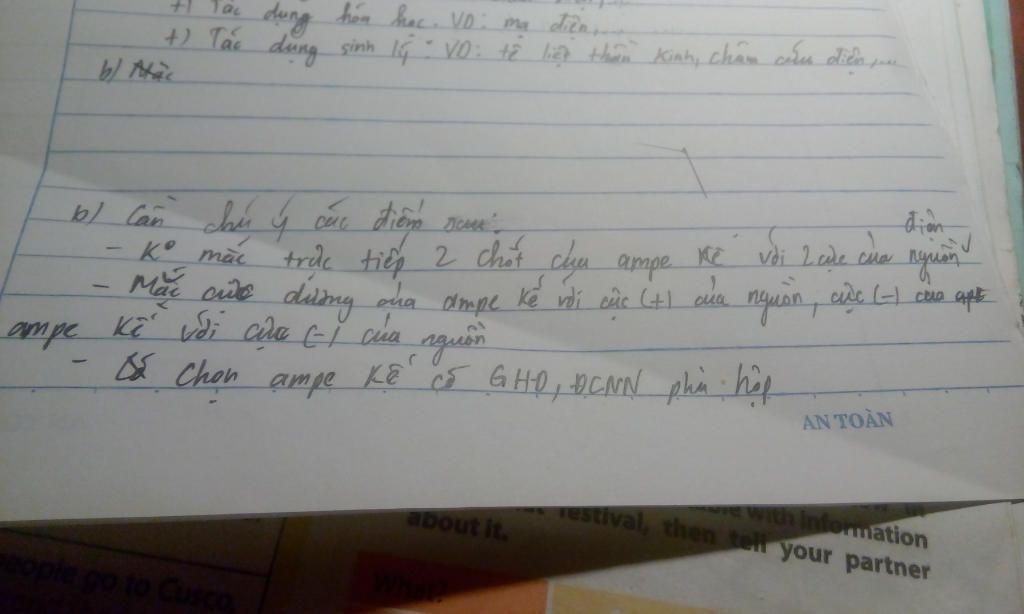 +) Tác dụng hóa học. VD: mạ điện,...
+) Tác dụng sinh lý: VD: tê liệt thần kinh, châm cứu điện,...
b) Mắc
b) Cần chú ý các điểm sau:
điện
- K° mắc trực tiếp 2 chốt của ampe kế với 2 cực của nguồn
- Mắc cực dương của ampe kế với cực (+) của nguồn, cực (-) của
ampe kế với cực (-) của nguồn
- Chọn ampe kế có GHĐ, ĐCNN phù hợp
AN TOÀN
with information
about it.
festival, then tell your partner
people go to Cusco,
What?